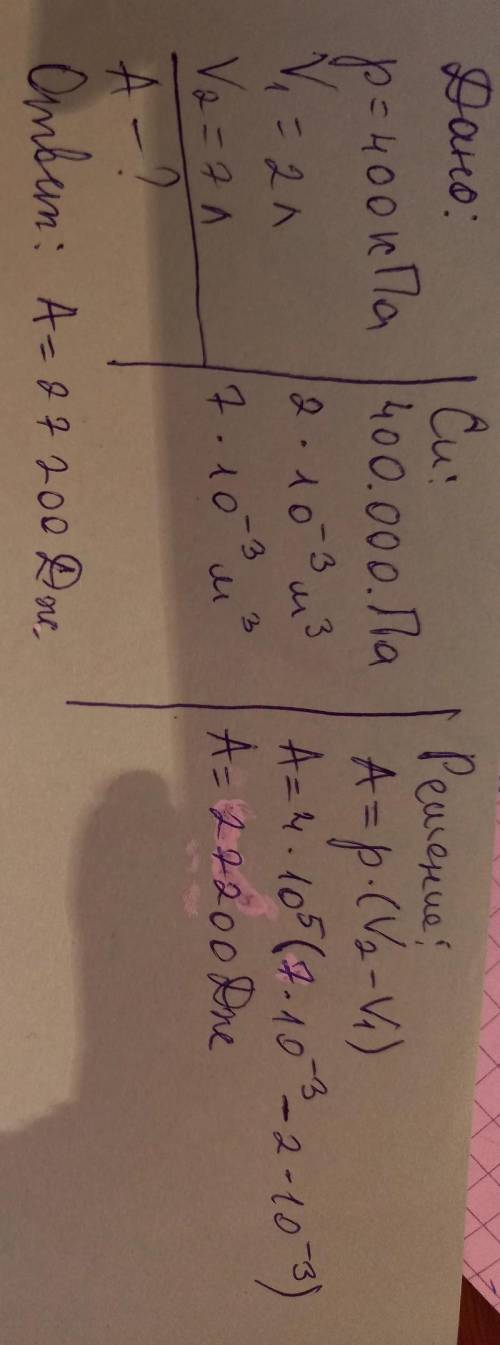 Дано:
p = 400 кПа
V₁ = 2 л
V₂ = 7 л
A – ?
Си:
400.000.Па
2 · 10⁻³ м³
7 · 10⁻³ м³
Решение:
A = p · (V₂ – V₁)
A = 4 · 10⁵ (7 · 10⁻³ – 2 · 10⁻³)
A = 27200 Дж
Ответ: A = 27200 Дж.